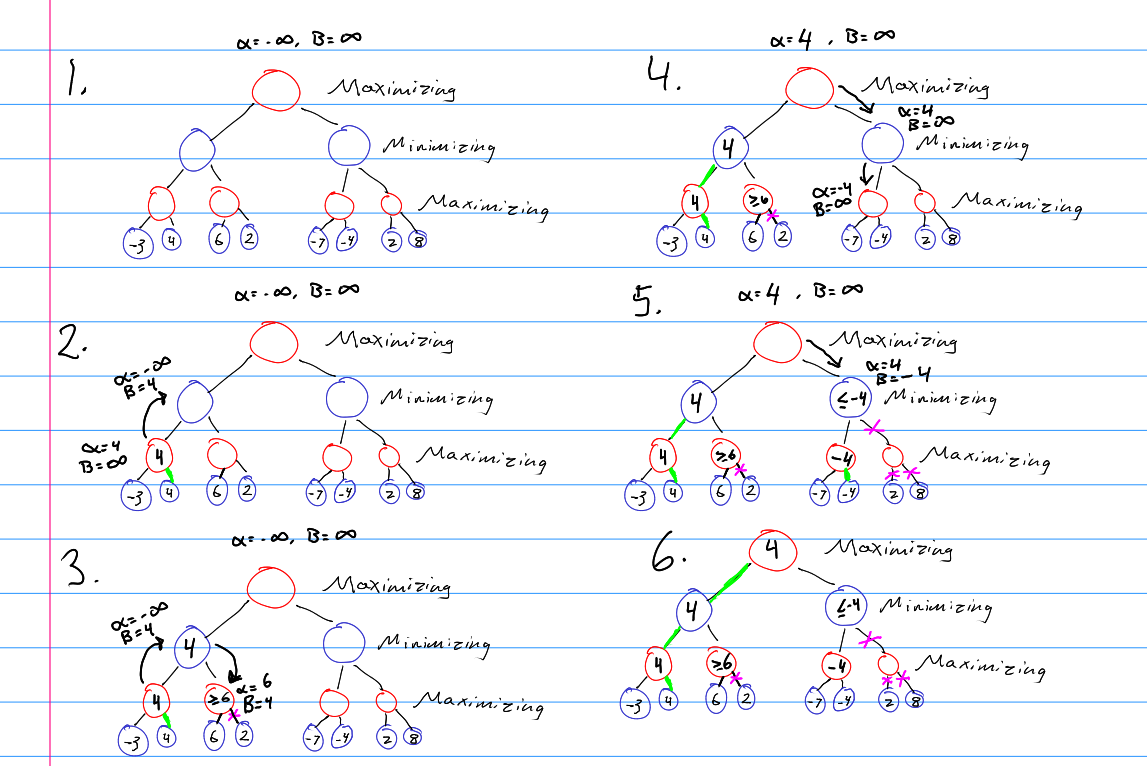 1.
α = -∞, B = ∞
Maximizing
Minimizing
Maximizing
-3 4 6 2 -7 -4 2 8
2.
α = -∞, B = ∞
Maximizing
α = -∞
B = 4
Minimizing
α = 4
B = ∞
4
Maximizing
-3 4 6 2 -7 -4 2 8
3.
α = -∞, B = ∞
Maximizing
α = -∞
B = 4
4
Minimizing
4 ≥6
α = 6
B = 4
Maximizing
-3 4 6 2 -7 -4 2 8
4.
α = 4, B = ∞
Maximizing
α = 4
B = ∞
4
Minimizing
4 ≥6
α = -4
B = ∞
Maximizing
-3 4 6 2 -7 -4 2 8
5.
α = 4, B = ∞
Maximizing
α = 4
B = -4
4 ≤-4
Minimizing
4 ≥6 -4
Maximizing
-3 4 6 2 -7 -4 2 8
6.
4
Maximizing
4 ≤-4
Minimizing
4 ≥6 -4
Maximizing
-3 4 6 2 -7 -4 2 8